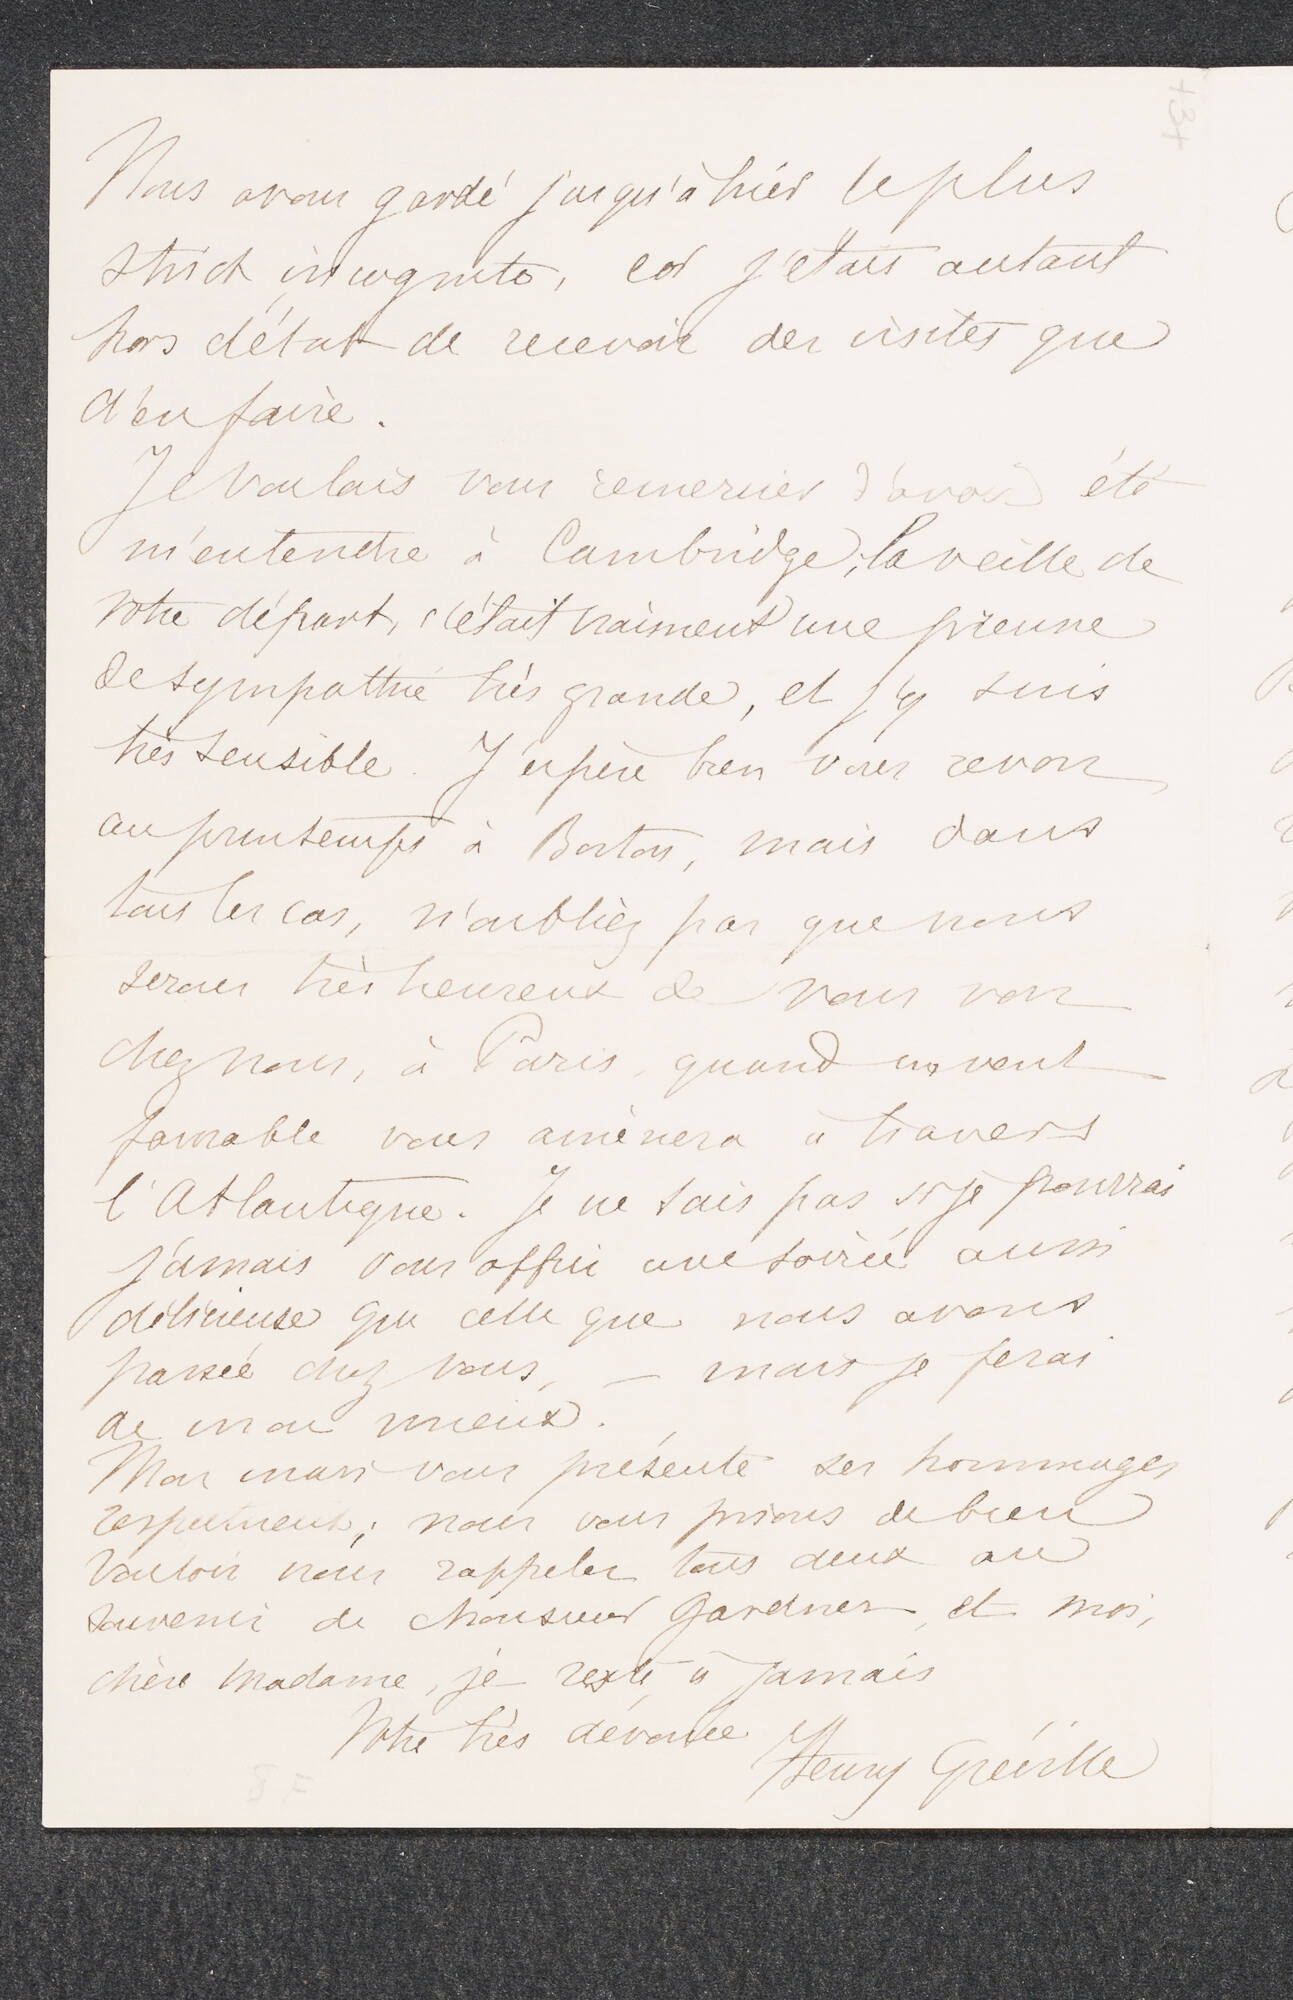 Nous avons gardé jusqu'à hier le plus
strict incognito, car j'étais autant
hors d'état de recevoir des visites que
d'en faire.
Je voulais vous remercier d'avoir été
m'entendre à Cambridge, la veille de
votre départ, c'était vraiment une preuve
de sympathie très grande, et j'y suis
très sensible. J'espère bien vous revoir
au printemps à Boston, mais dans
tous les cas, n'oubliez pas que nous
serons très heureux de vous voir
chez nous, à Paris, quand un vent
favorable vous amènera à travers
l'Atlantique. Je ne sais pas si je pourrai
jamais vous offrir une soirée aussi
délicieuse que celle que nous avons
passée chez vous, — mais je ferai
de mon mieux.
Mon mari vous présente ses hommages
respectueux; nous vous prions de bien
vouloir nous rappeler tous deux au
souvenir de Monsieur Gardner, et moi,
chère Madame, je reste à jamais
Votre très dévouée
Henry Gréville